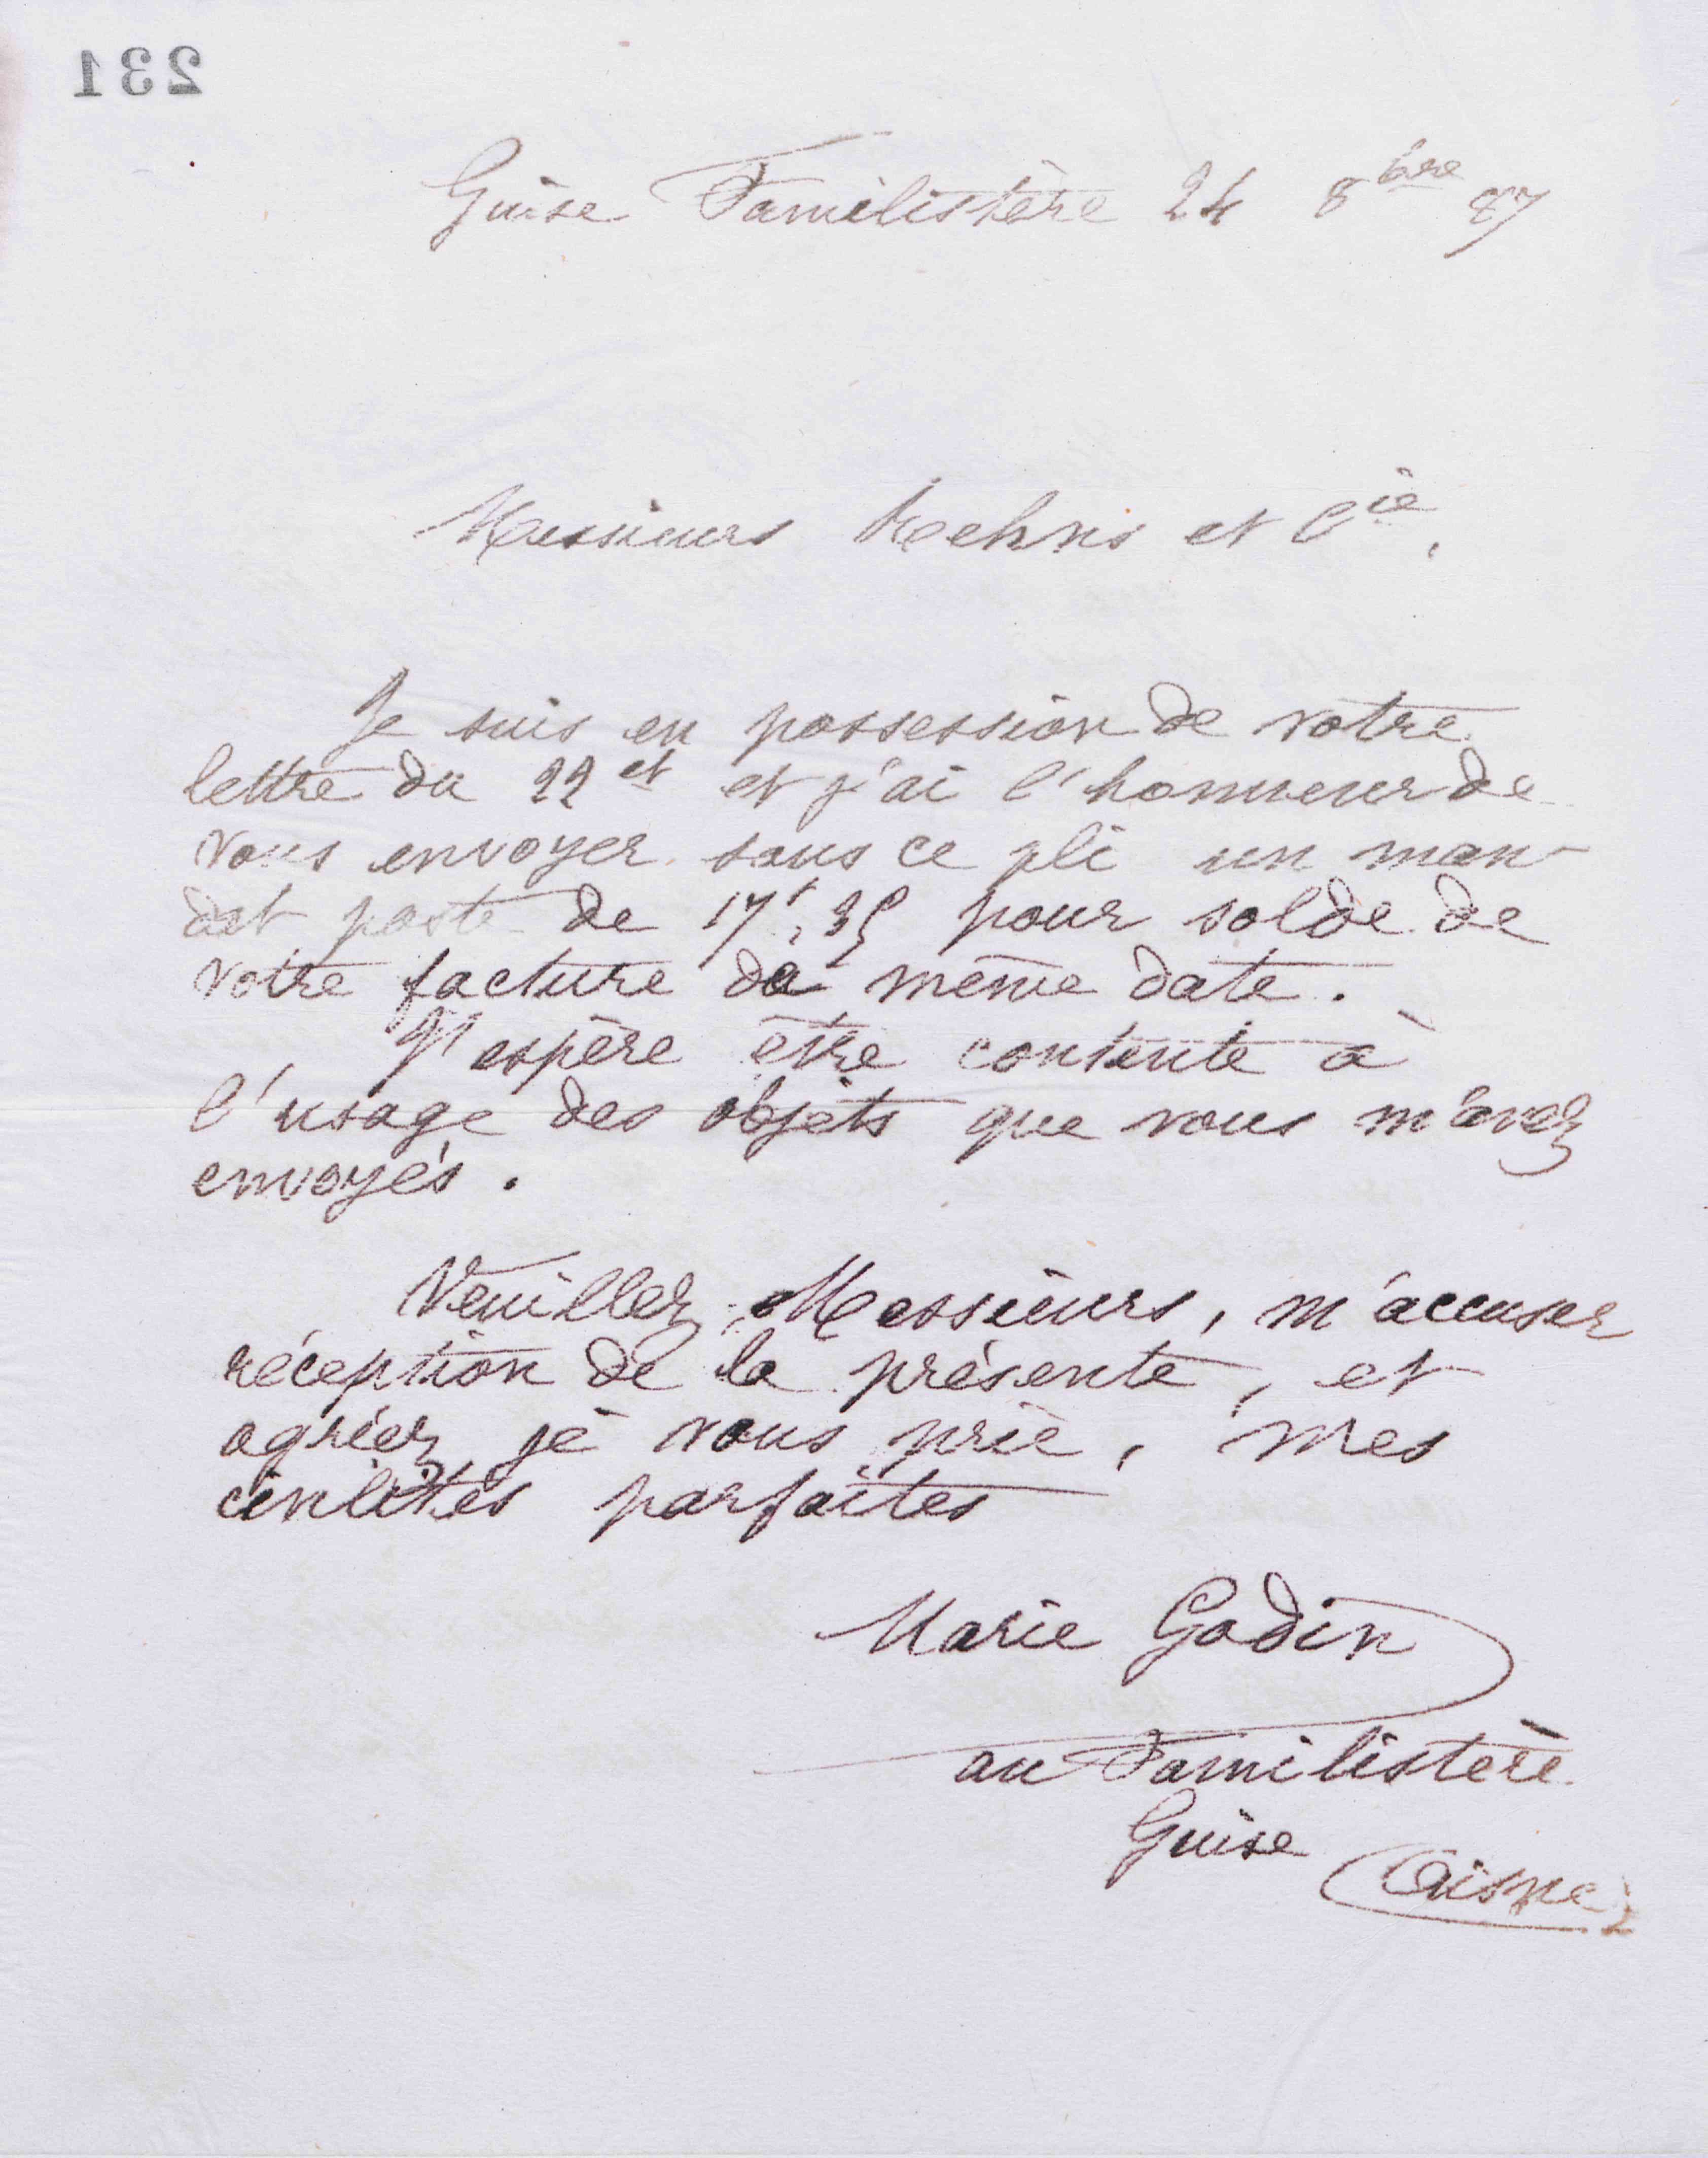 231
Guise Familistère 24 8bre 87
Messieurs et Cie,
Je suis en possession de votre
lettre du 22 ct et j'ai l'honneur de
vous envoyer sous ce pli un man-
dat poste de 17f,35 pour solde de
votre facture du même date.
J'espère être contente à
l'usage des objets que vous m'avez
envoyés.
Veuillez, Messieurs, m'accuser
réception de la présente, et
agréez je vous prie, mes
civilités parfaites
Marie Godin
au Familistère
Guise (Aisne)